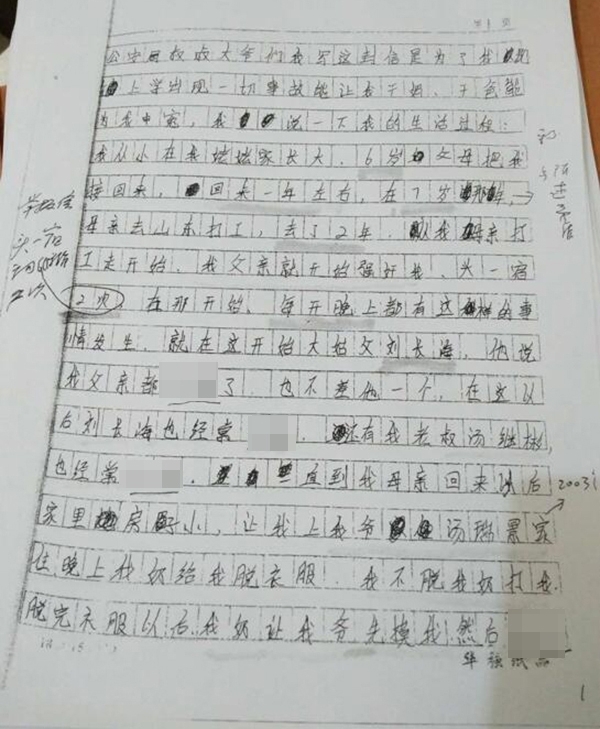 第1页
公安局叔叔大爷们我写这封信是为了我
上学出现一切事故能让我干妈、干爸能
为我申冤,我说一下我的生活过程:
我从小在我姥姥家长大,6岁父母把我
接回来,回来一年左右,在7岁那年,
母亲去山东打工,去了2年,从我母亲打
工走开始,我父亲就开始强奸我,头一宿
2次,在那开始,每天晚上都有这样的事
情发生,就在这开始大姑父刘长海,他说
我父亲都 了,也不差他一个,在这以
后刘长海也经常 ,还有我老叔汤继彬,
也经常 ,一直到我母亲回来以后
2003
家里房子小,让我上我爷汤瑞景家
住晚上我奶给我脱衣服,我不脱我奶打我
脱完衣服以后我奶让我爷先 我然后
头一宿
2次
1